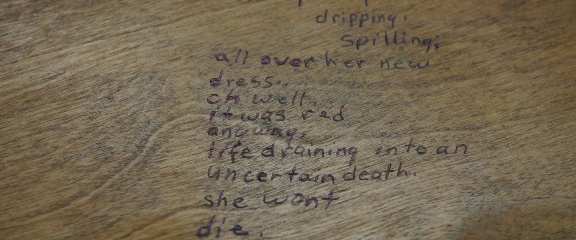 dripping.
Spilling;
all over her new
dress..
oh well.
it was red
anyway.
life draining into an
uncertain death.
she wont
die.